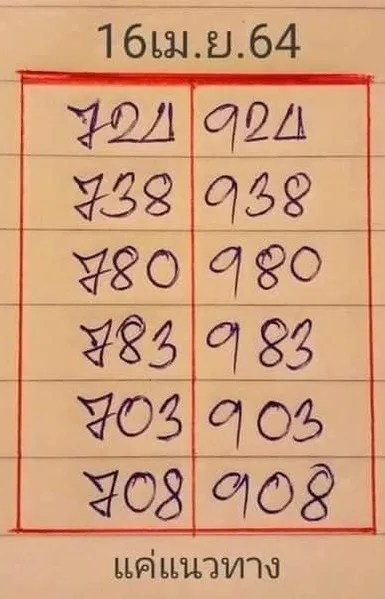 16เม.ย.64
724 924
738 938
780 980
783 983
703 903
708 908
แค่แนวทาง